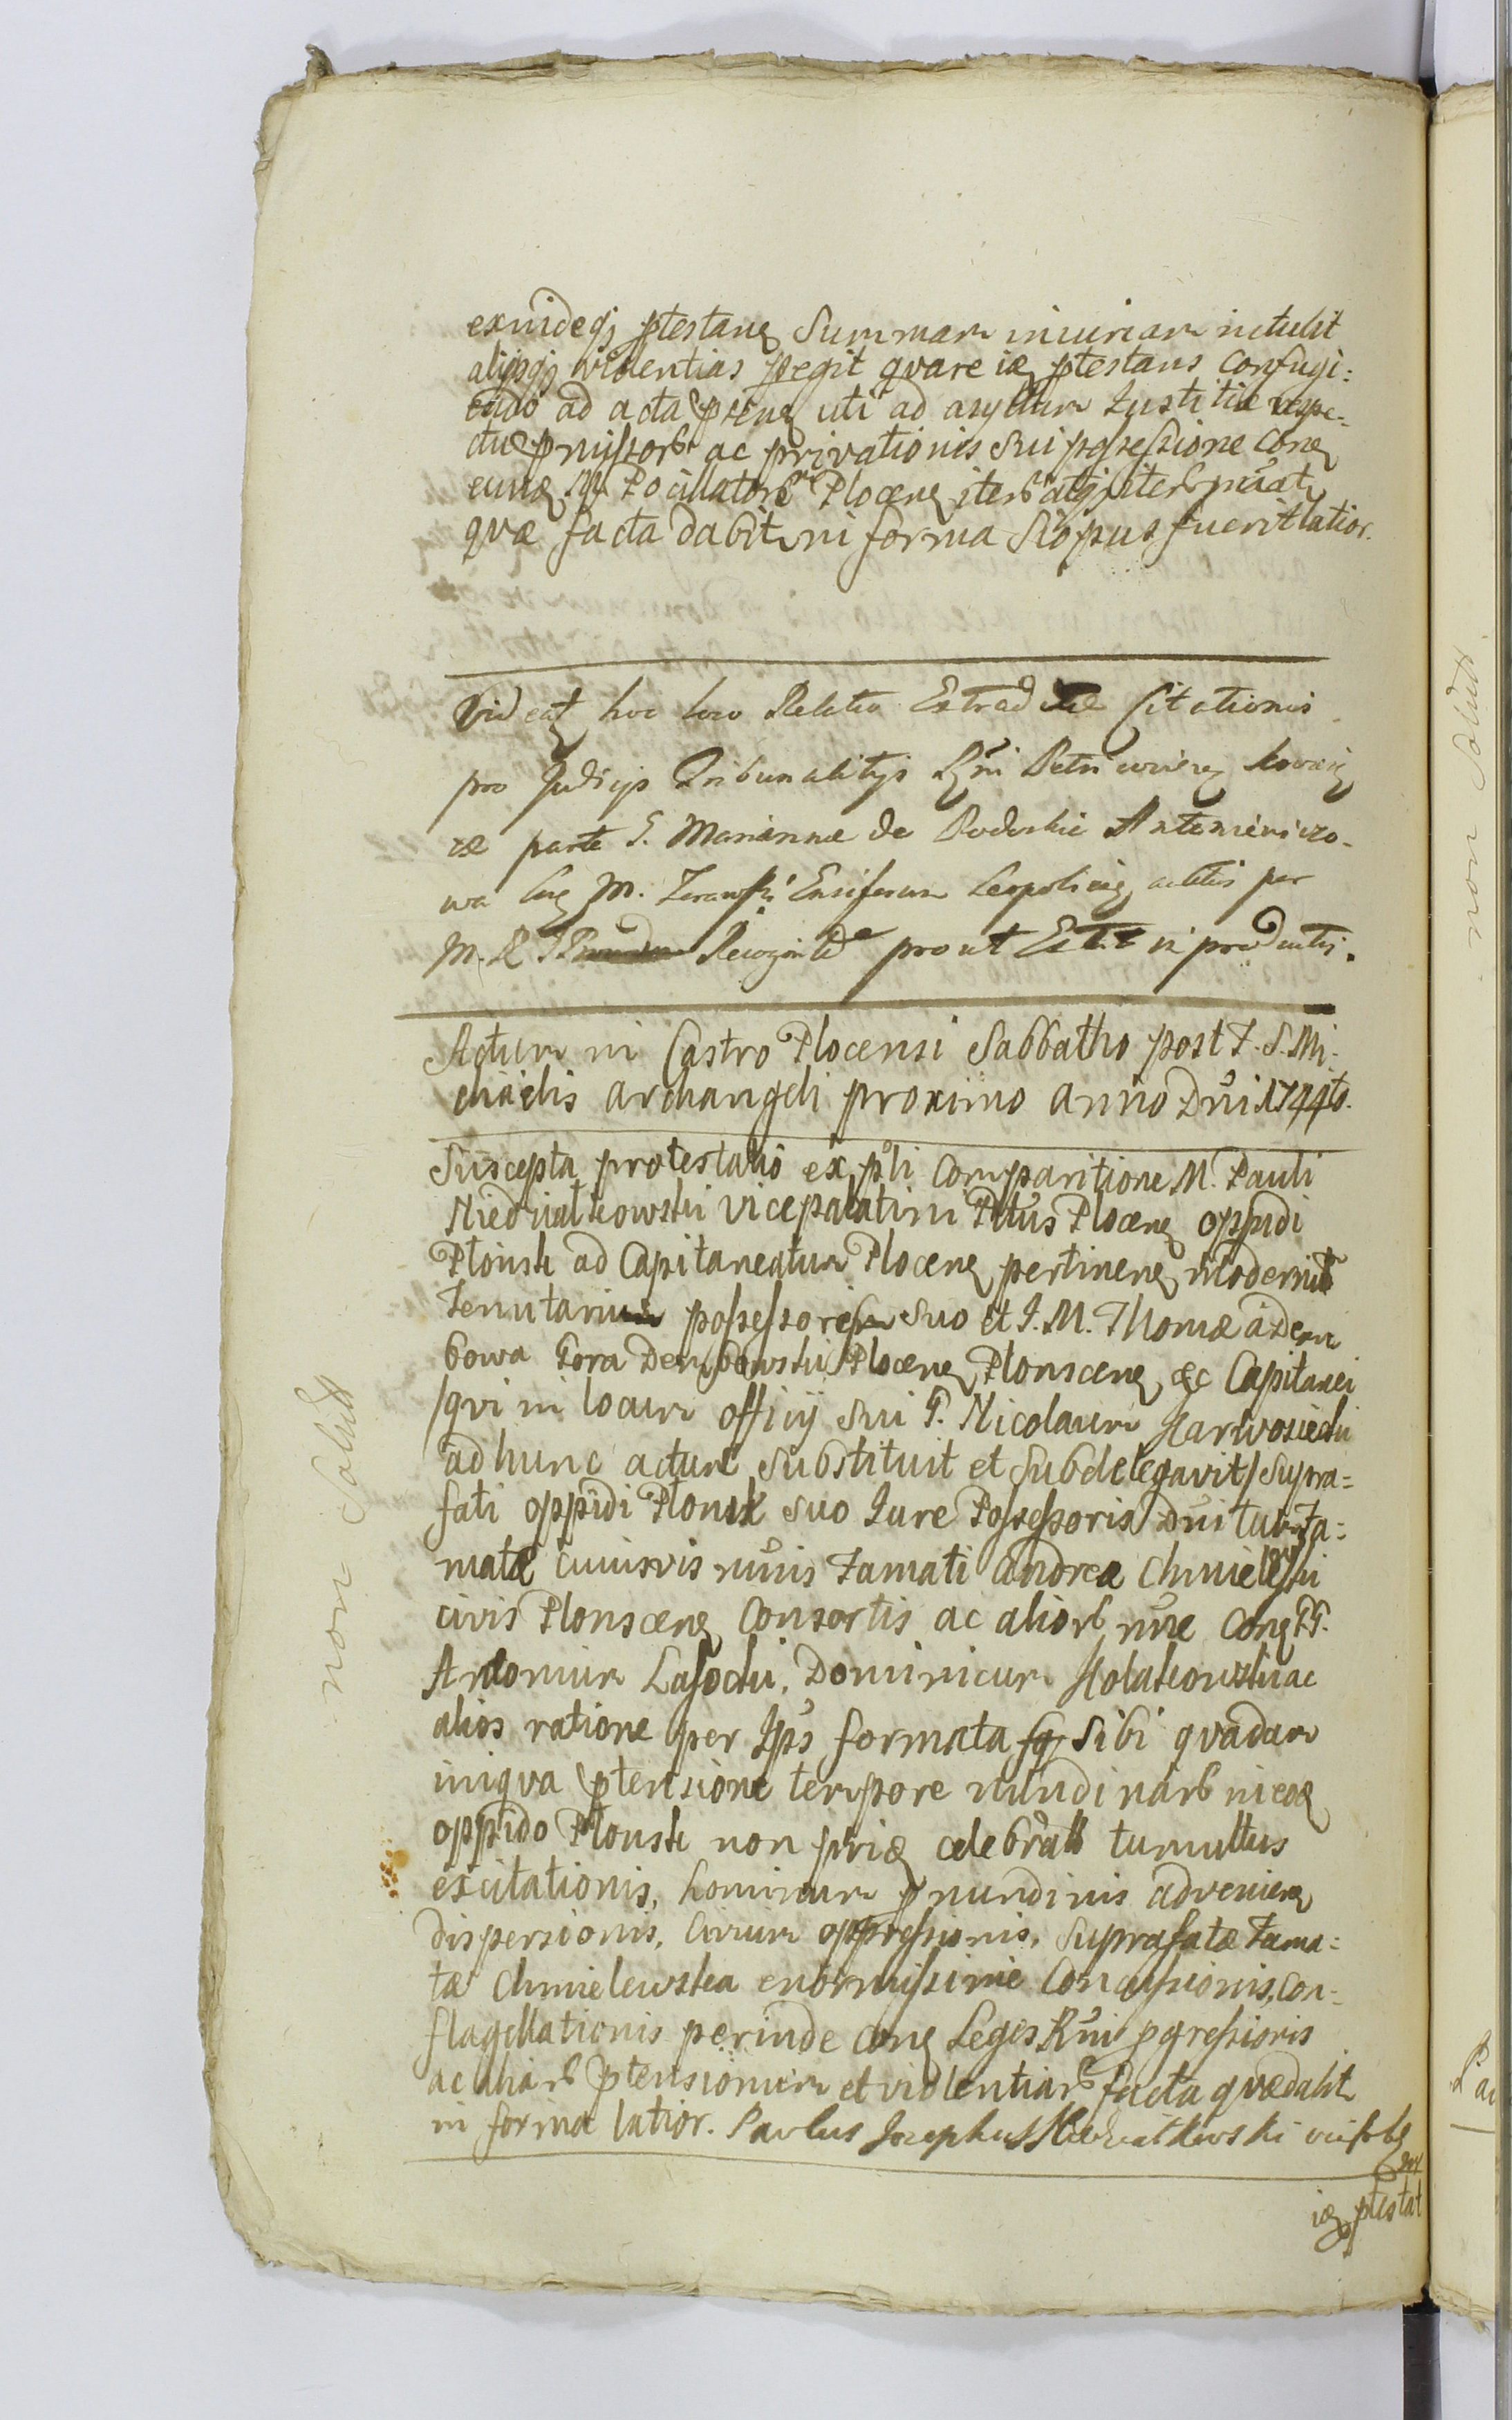 exindeqz ptestanz Summam iniuriam intulit
alijsqz violentias pegit qvare idz ptestans confugi:
endo ad acta psenz uti ad asyllum Justitiæ respe-
ctu pmissorb ac privationis sui possessione conz
eundz M. Pocillatorē Plocenz iterb atqz iterb
qvæ facta dabit in forma si opus fuerit latior.
Videatz hoc loco Relatio Extraditæ Citationis
pro Judicijs Tribunalitijs Rgni Petricovienz
ex parte G. Mariannæ de Antoniewiczo-
wa M. Ensiferum Leopolienz per
M. R. Recognitæ prout Est in productis.
Actum in Castro Plocensi Sabbatho post F. S. Mi-
chaelis Archangeli proximo Anno Dni 1744to.
Suscepta protestatio ex psli Comparitione M. Pauli
Niedzialkowski Vicepalatini Pttus Plocenz oppidi
Plonsk ad Capitaneatum Plocenz pertinenz moderni
Tenutarii possessoris suo et I. M. Thomæ a Dem
bowa Gora Dembowski Plocenz Plonscenz &c Capitanei
/qvi in locum officij sui G. Nicolaum
ad hunc actum substituit et subdelegavit/ supra=
fati oppidi Plonsk suo Jure Possessoris Dni tuit. Fa=
matæ cuiusvis nnis Famati Andreæ Chmielewski
civis Plonscenz Consortis ac aliorb nne Conz GG.
Antonium Lasocki, Dominicum ac
alios ratione per Ips formata sq sibi qvadam
iniqva ptensione tempore nundinarb in eodz
oppido Plonsk non pridz celebratb tumultus
excitationis, hominum p nundinis advenienz
dispersionis, Civium oppressionis, suprafatæ Fama=
tæ Chmielewska enormissimæ Concussionis, con-
flagellationis perinde conz Leges Rgni pgressionis
ac aliarb ptensionum et violentiarb facta qvæ dabit
in forma latior. Paulus Josephus Niedzialkowski
idz ptestat
non Solutt
non Solutt